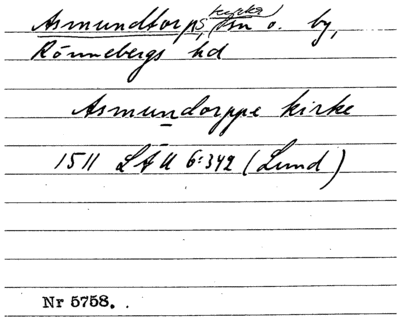 kyrka
Asmundtorps, sn o. by,
Rönnebergs hd
Asmundorppe kirke
1511 LÄU 6:342 (Lund)
Nr 5758.